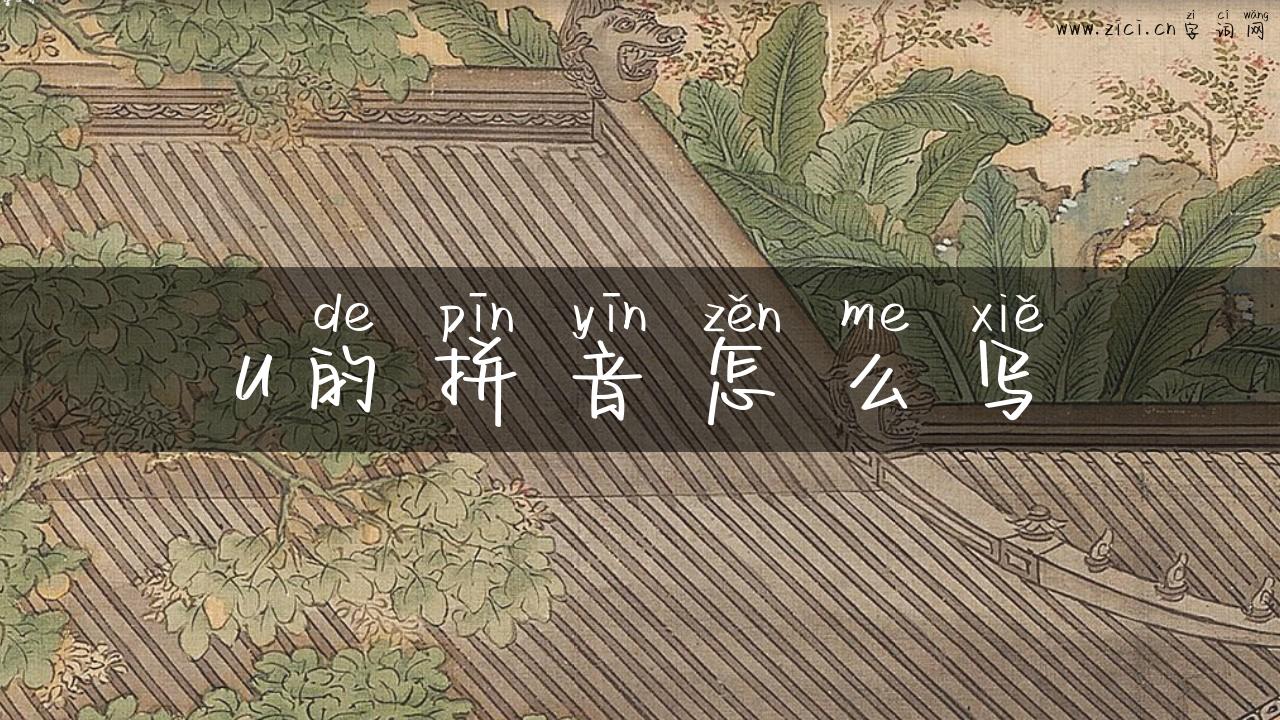 zì cí wǎng
www.zici.cn 字词网
de pīn yīn zěn me xiě
u的拼音怎么写